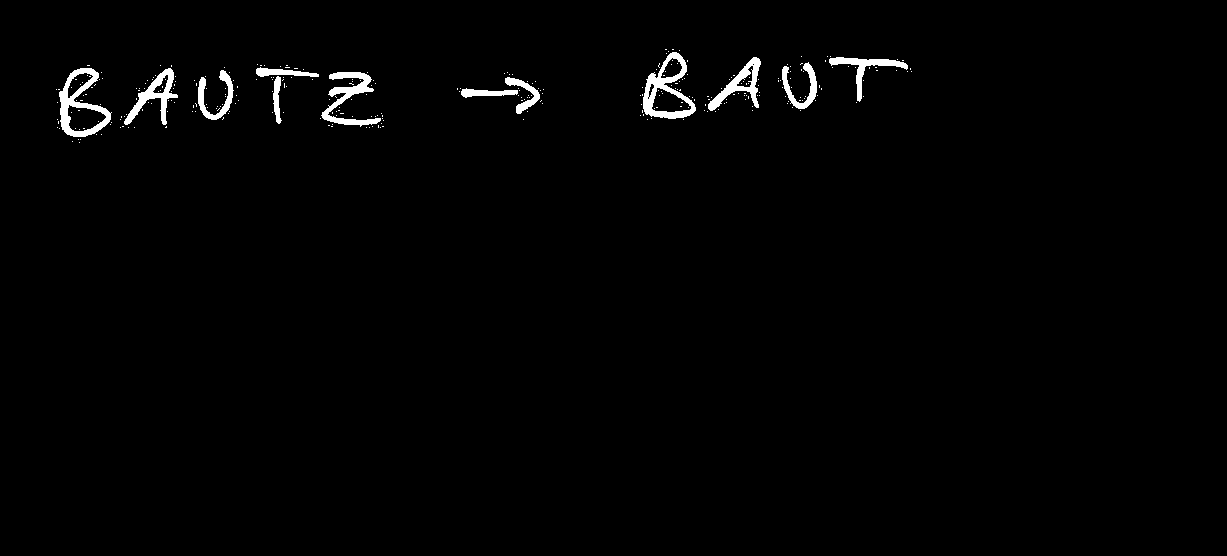 BAUTZ → BAUT